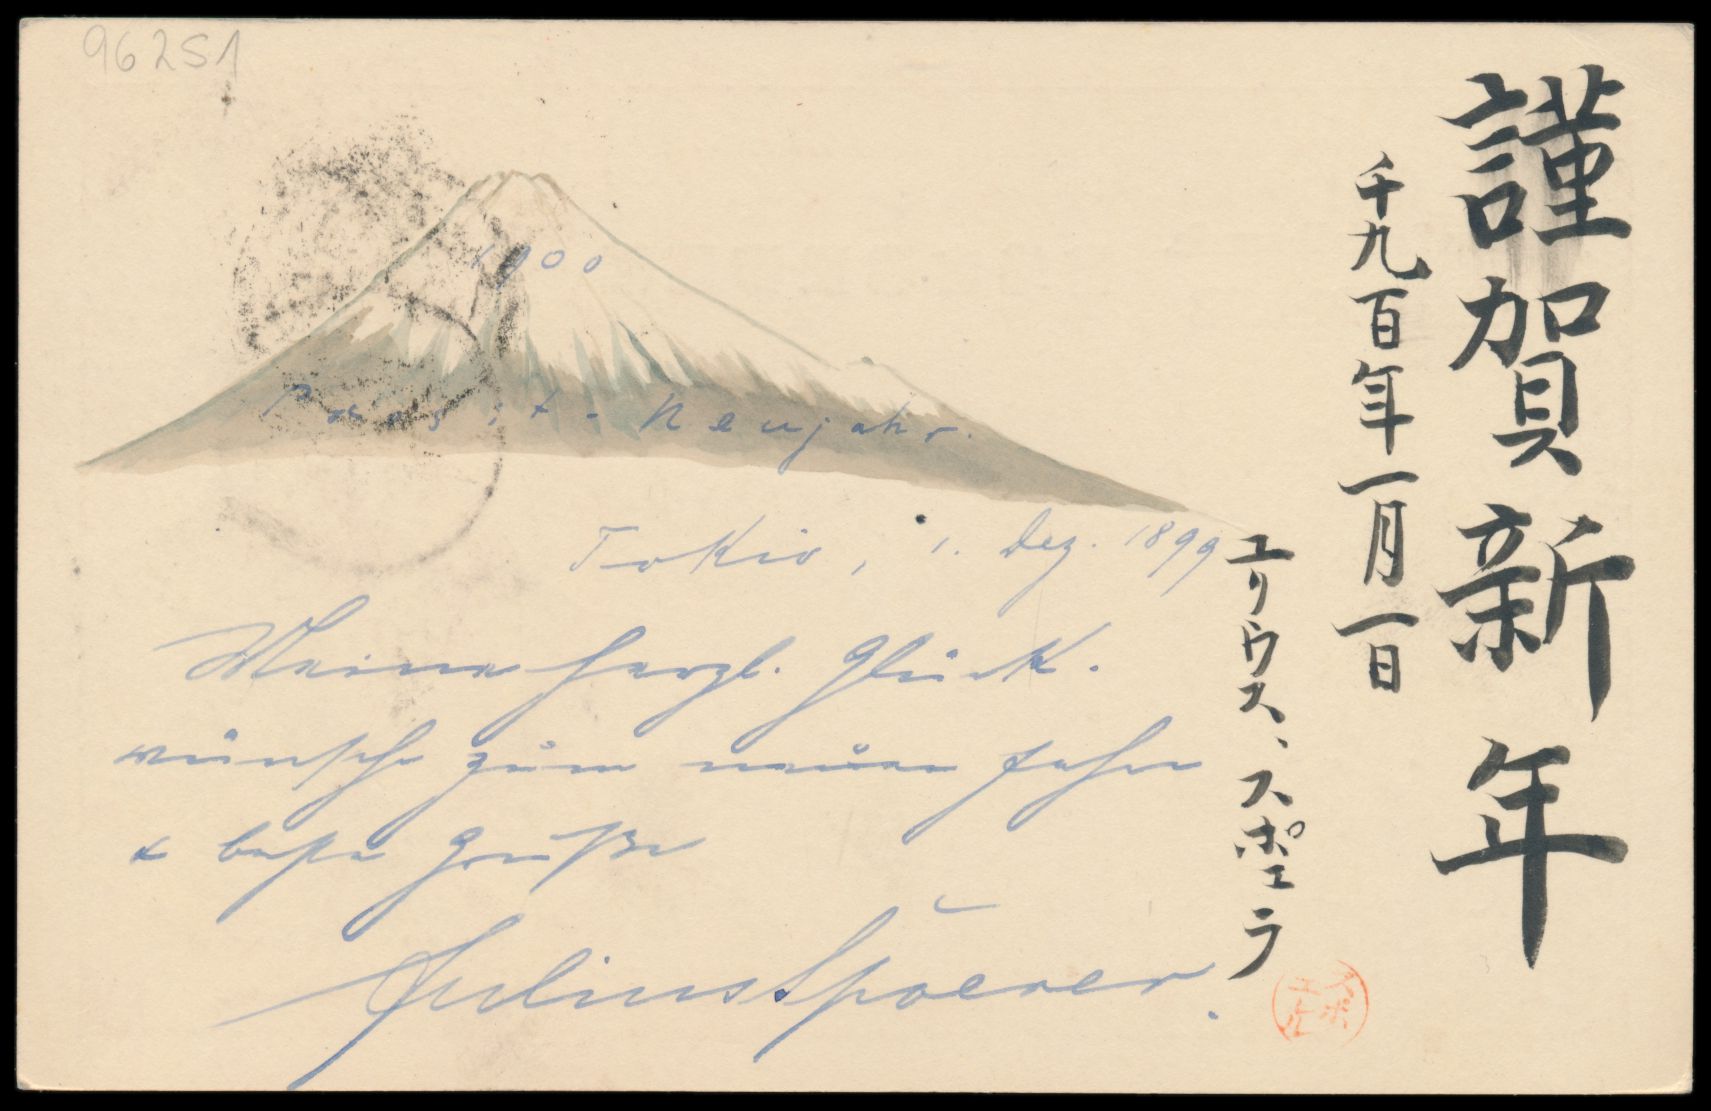 96251
謹賀新年
千九百年一月一日
ユリウス、スポエラ
スポエル
1900
Prosit-Neujahr.
Tokio, 1. Dez. 1899
Meine herzl. Glück-
wünsche zum neuen Jahre
& beste Grüße
Julius Spöerer.